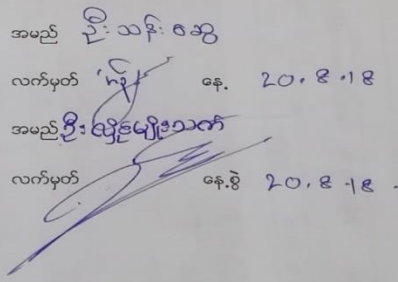 အမည် ဦးသန်းဇော်
လက်မှတ် နေ့. 20.8.18
အမည် ဦးလှိုင်မျိုးသက်
လက်မှတ် နေ့.စွဲ 20.8.18.